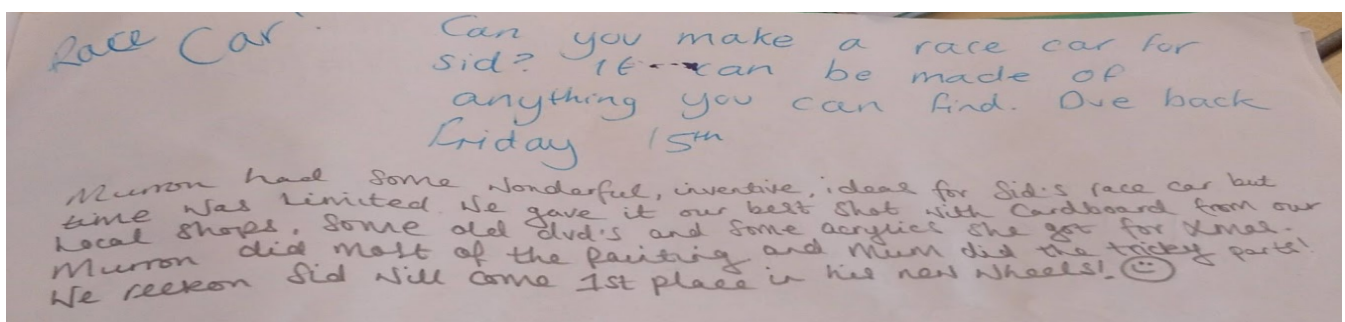 Race Car.
Can you make a race car for
sid? It can be made of
anything you can find. Due back
Friday 15th
Murron had some wonderful, inventive, ideas for Sid's race car but
time was limited. We gave it our best shot with cardboard from our
local shops, some old dvd's and some acrylics she got for Xmas.
Murron did most of the painting and Mum did the tricky parts!
We reckon Sid will come 1st place in his new wheels! ☺